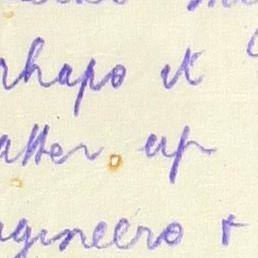 rhaps it
atter up
gineers +